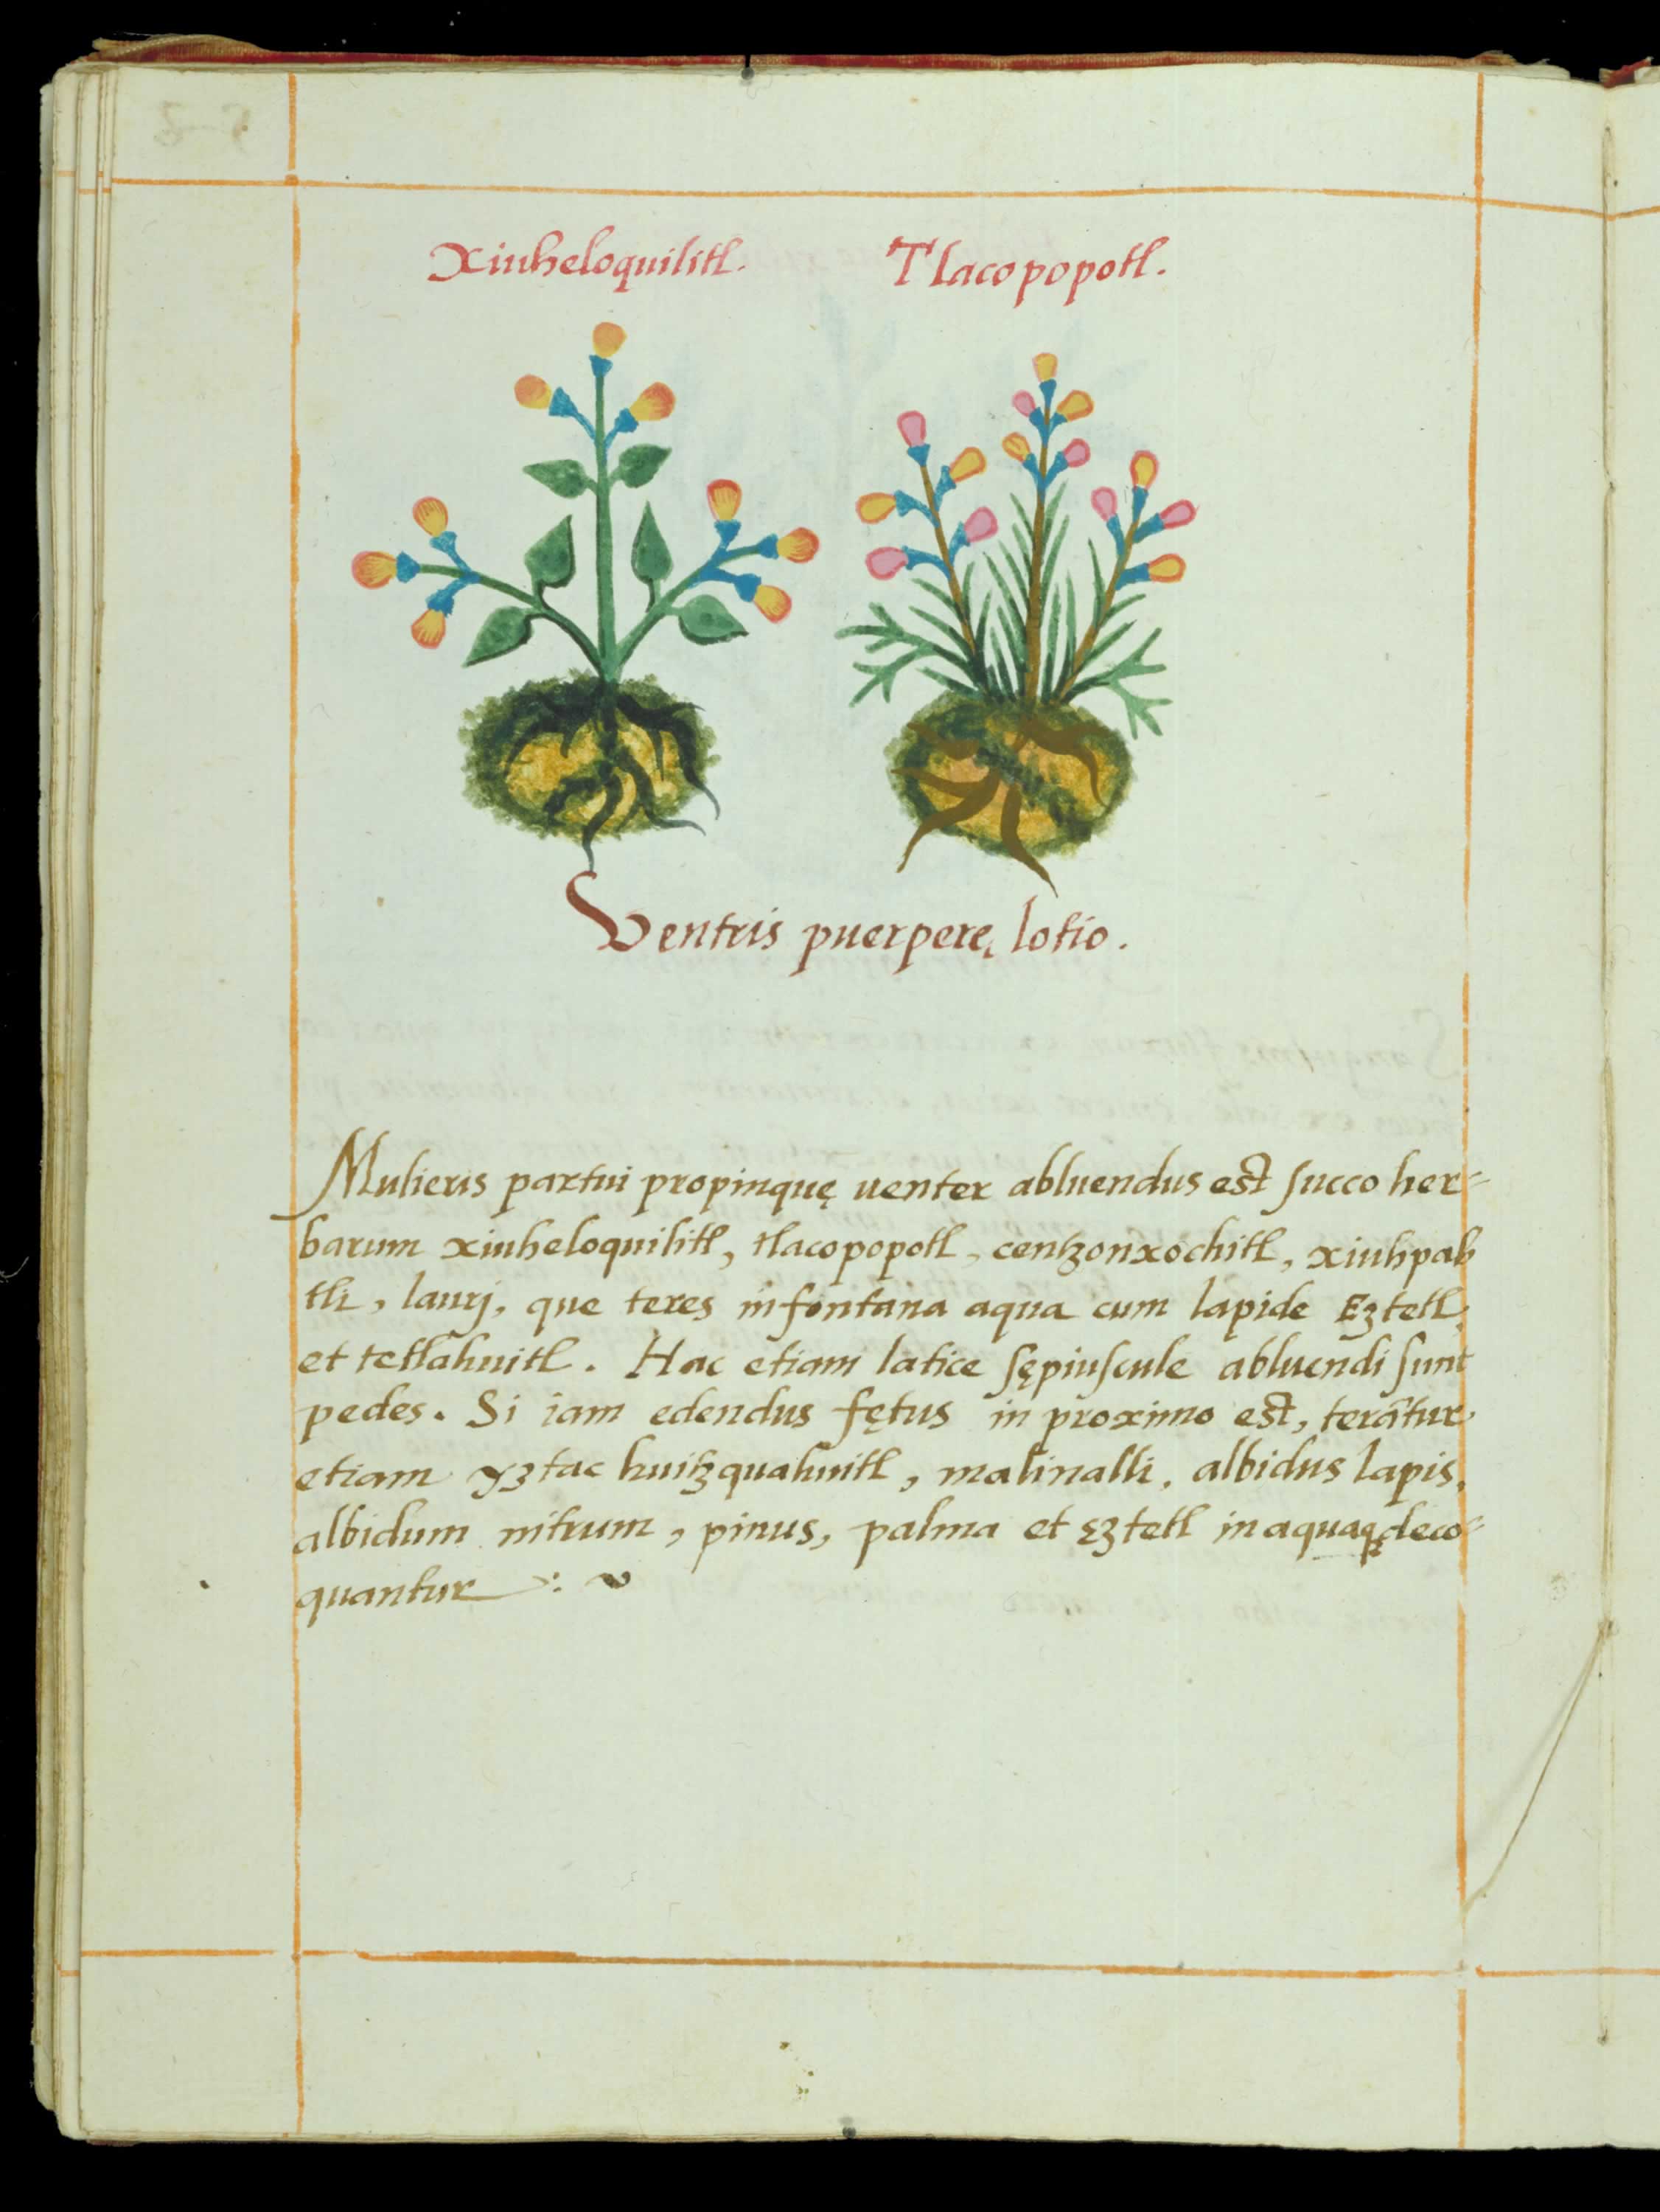 Xiuheloquilitl. Tlacopopotl.
Ventris puerperę lotio.
Mulieris partui propinquę uenter abluendus est succo her-
barum xiuheloquilitl, tlacopopotl, centzonxochitl, xiuhpah
tli, laurj, que teres in fontana aqua cum lapide Eztetl,
et tetlahuitl. Hac etiam latice sępiuscule abluendi sunt
pedes. Si iam edendus fętus in proximo est, terātur
etiam yztac huitzquahuitl, malinalli, albidus lapis,
albidum nitrum, pinus, palma et eztetl in aquaqȝ deco-
quantur